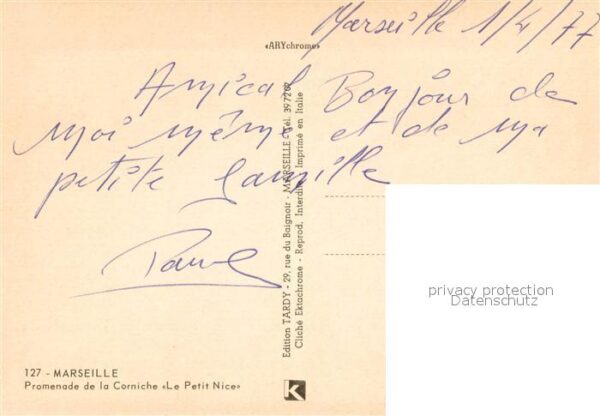 Marseille 1/4/77
«ARYchrome»
Amical Bonjour de
moi même et de ma
petite famille
Edition TARDY - 29, rue du Baignoir - MARSEILLE - Tél. 39 72 02
Cliché Ektachrome - Reprod. Interdite - Imprimé en Italie
privacy protection
Datenschutz
127 - MARSEILLE
Promenade de la Corniche «Le Petit Nice»
K